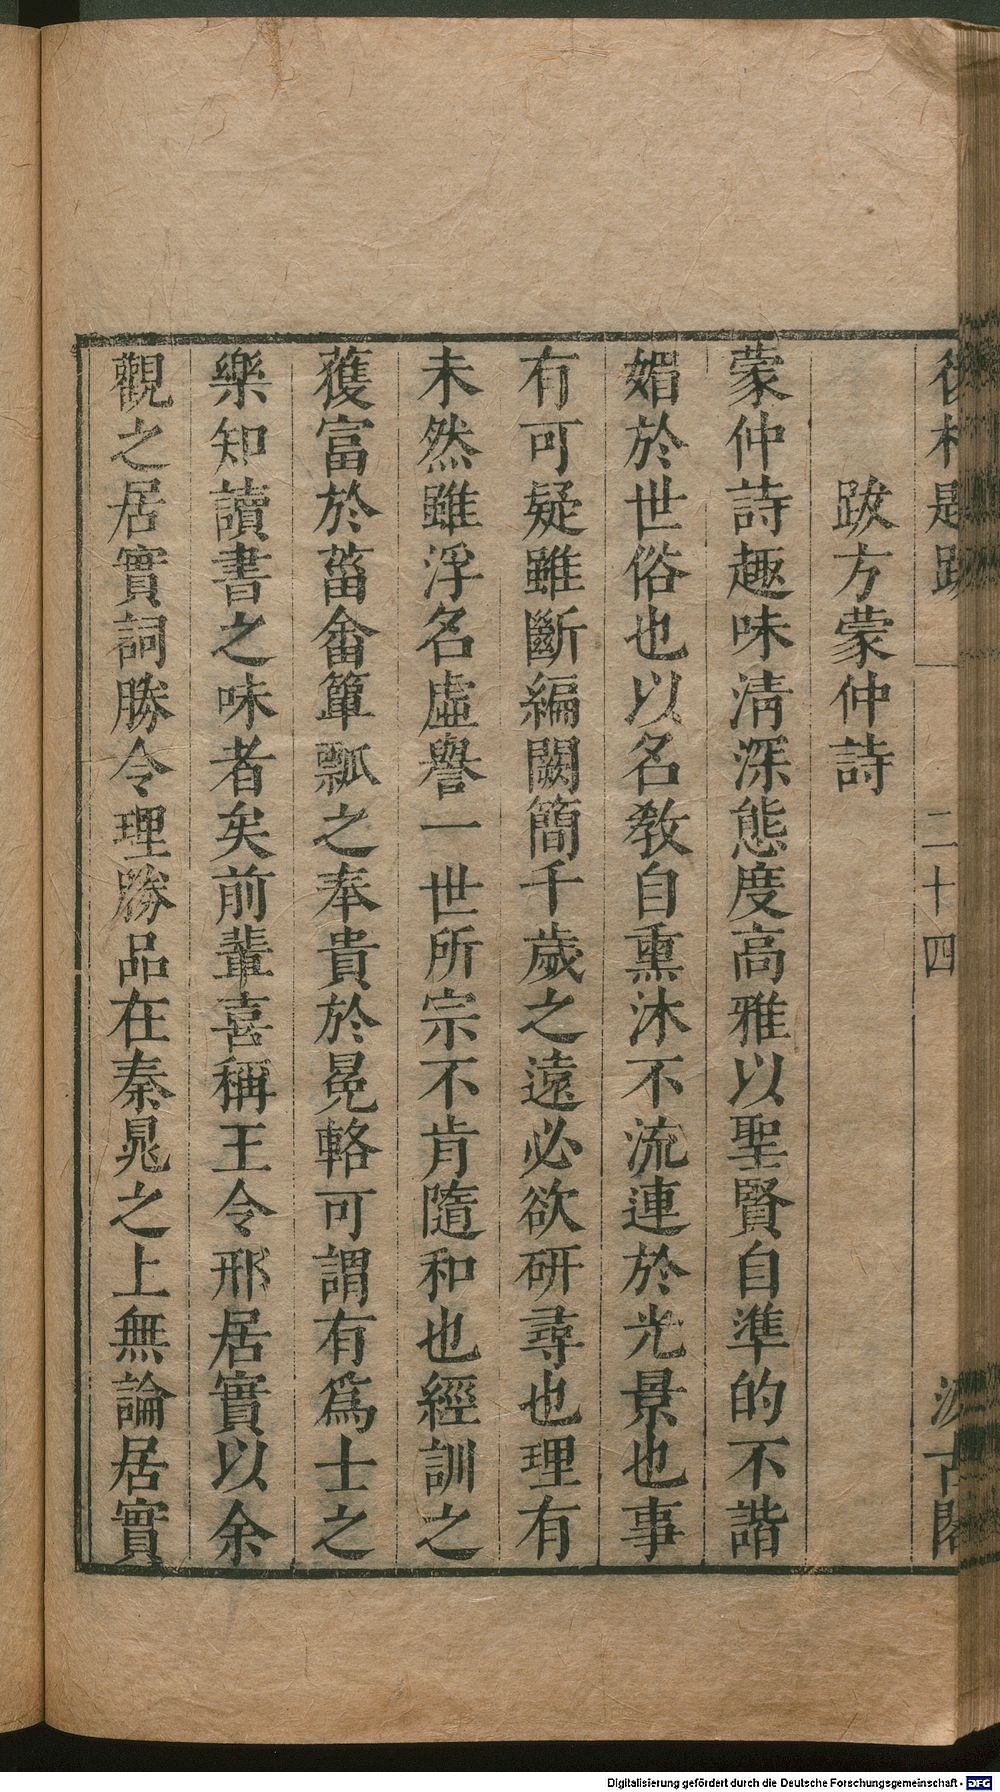 後村題跋 二十四 汲古閣
跋方蒙仲詩
蒙仲詩趣味淸深態度高雅以聖賢自準的不諧
媚於世俗也以名敎自熏沐不流連於光景也事
有可疑雖斷編闕簡千歲之遠必欲研尋也理有
未然雖浮名虛譽一世所宗不肯隨和也經訓之
蓑富於菑畬簞瓢之奉貴於冕輅可謂有爲士之
樂知讀書之味者矣前輩喜稱王令邢居實以余
觀之居實詞勝令理勝品在秦晁之上無論居實
Digitalisierung gefördert durch die Deutsche Forschungsgemeinschaft - DFG